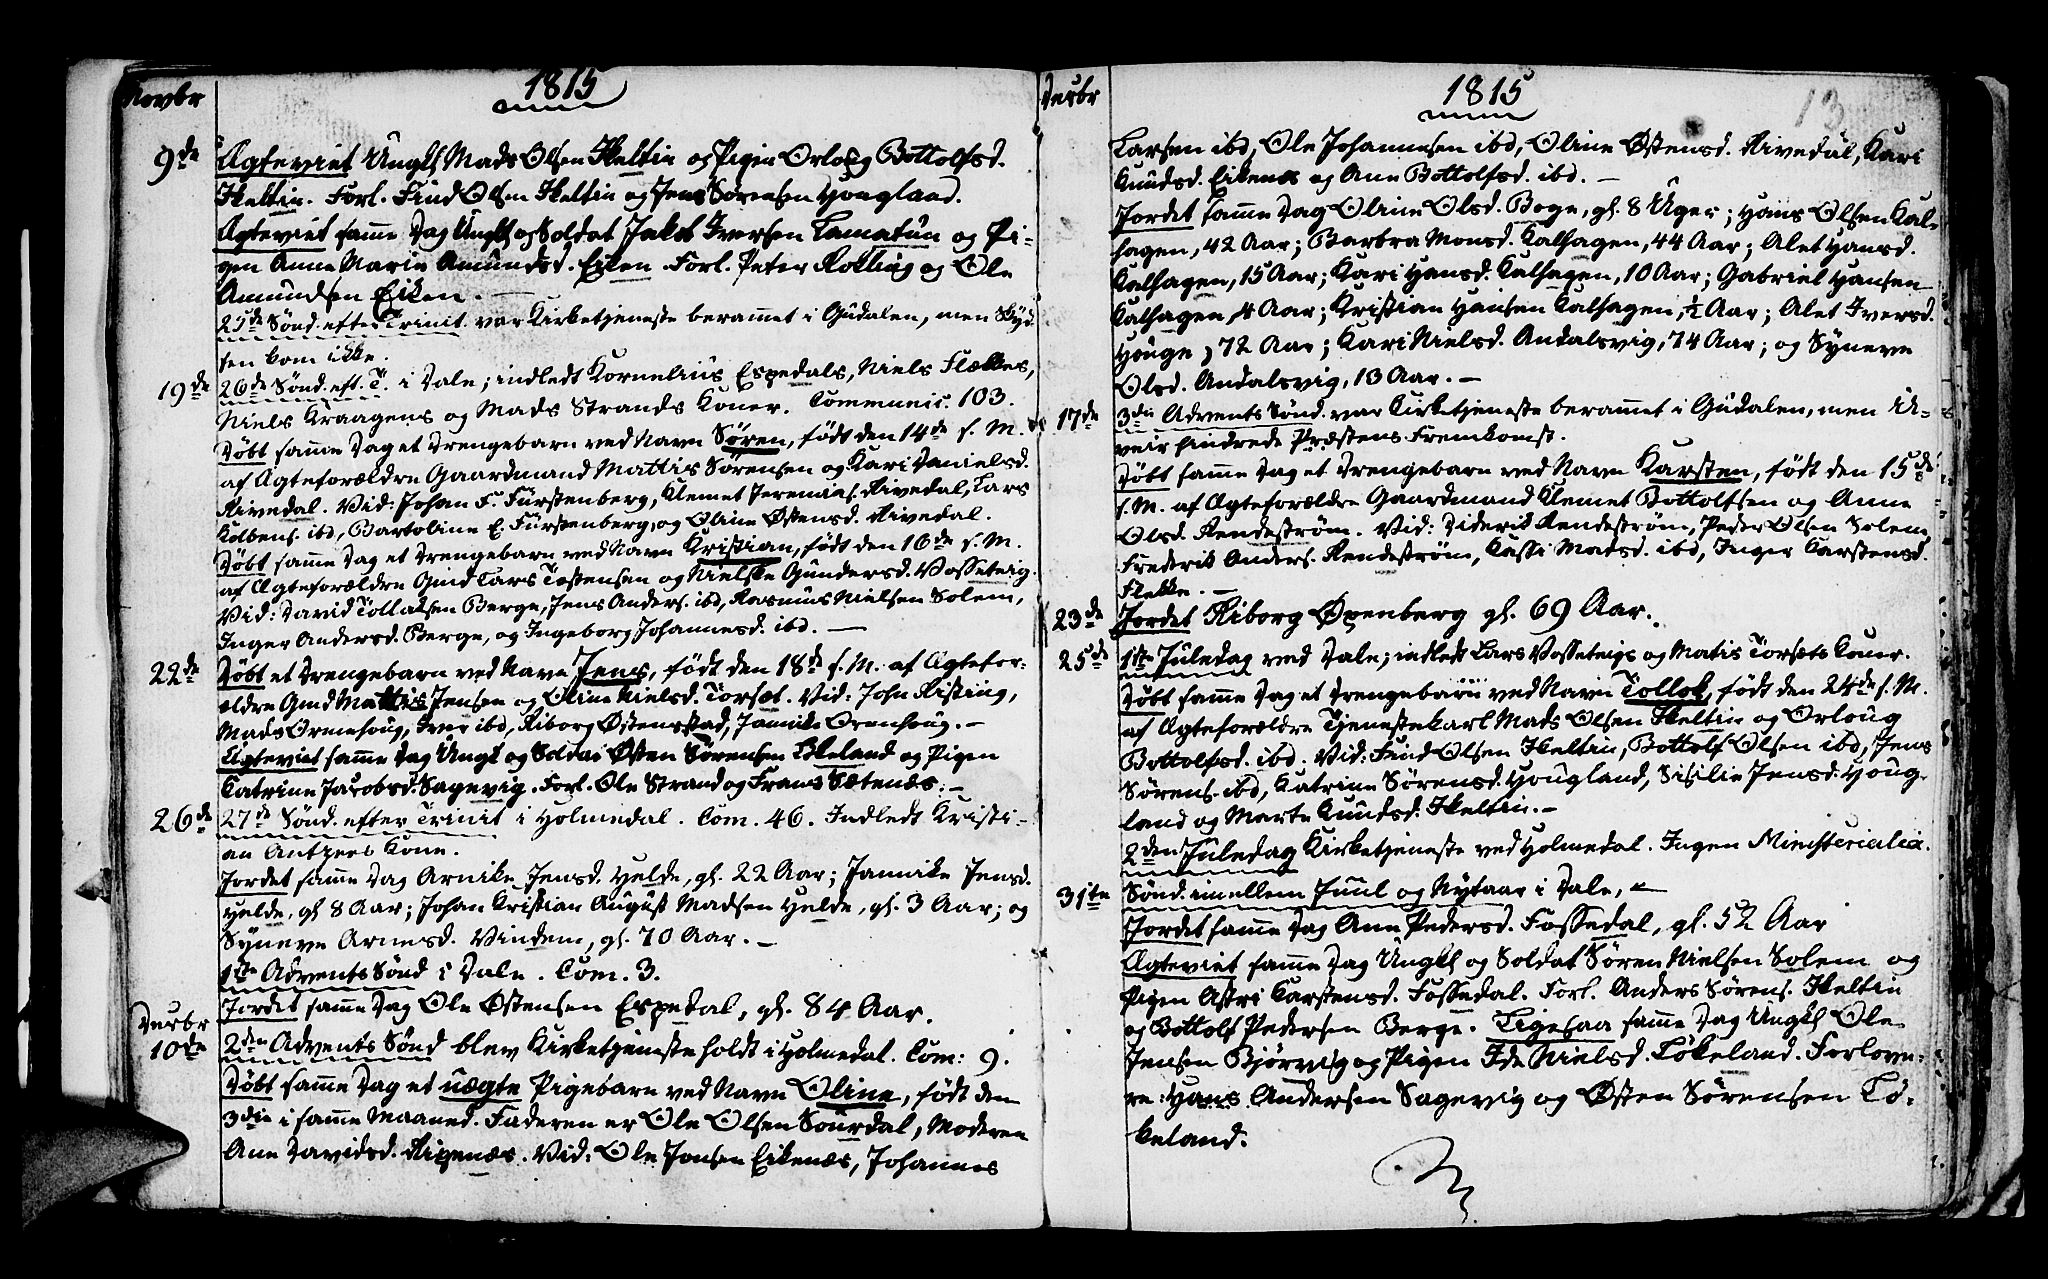 Novbr
1815
9de Ægteviet Ungkl Mads Olsen Skeltin og Pigen Orloug Bottolfsd.
Skeltin. Forl. Find Olsen Skeltin og Jens Sörensen Hougland.
Ægteviet samme Dag Ungkl og Soldat Jakob Iversen Lamatun og Pi-
gen Anne Marie Amundsd. Eiken. Forl. Peter Kolling og Ole
Amundsen Eiken. —
25de Sönd. efter Trinit. var Kirketjeneste berammet i Gudalen, men Skyd-
sen kom ikke.
19de 26de Sönd. eft. T. i Dale; indledt Kornelius Espedals, Niels Flækkes,
Niels Kraagens og Mads Strands Koner. Communic. 103.
Döbt samme Dag et Drengebarn ved Navn Sören, födt den 14de s. M.
af Ægteforældre Gaardmand Mattis Sörensen og Kari Danielsd.
Rivedal. Vid: Johan F. Fürstenberg, Klemet Jeremias. Rivedal, Lars
Kolbens. ibd, Bartoline E. Fürstenberg, og Oline Östensd. Rivedal.
Döbt samme Dag et Drengebarn ved Navn Kristian, födt den 16de s. M.
af Ægteforældre Gmd Lars Tostensen og Nielske Gundersd. Vosseteig.
Vid: David Tollaksen Berge, Jens Anders. ibd, Rasmus Nielsen Solem,
Inger Andersd. Berge, og Ingeborg Johannesd. ibd. —
22de Döbt et Drengebarn ved Navn Jens, födt den 18de s. M. af Ægtefor-
ældre Gmd Mattis Jensen og Oline Nielsd. Torsæt. Vid: John Risting,
Mads Ormehoug, Iver ibd, Riborg Östenstad, Jannike Ormhoug. —
Ægteviet samme Dag Ungk og Soldat Östen Sörensen Lökeland og Pigen
Katrine Jacobsd. Sagevig. Forl. Ole Strand og Frans Sætenæs. —
26de 27de Sönd. efter Trinit i Holmedal. Com. 46. Indledt Kristi-
an Antzees Kone.
Jordet samme Dag Arnike Jensd. Helde, gl. 22 Aar; Jannike Jensd.
Helde, gl 8 Aar; Johan Kristian August Madsen Helde, gl. 3 Aar; og
Syneve Arnesd. Vindem, gl. 70 Aar. —
1ste Advents Sönd i Dale. Com. 3.
Jordet samme Dag Ole Östensen Espedal, gl. 84 Aar.
Decbr
10de 2den Advents Sönd blev Kirketjeneste holdt i Holmedal. Com: 9.
Döbt samme Dag et uægte Pigebarn ved Navn Oline, födt den
3die i samme Maaned. Faderen er Ole Olsen Sourdal, Moderen
Ane Davidsd. Rixenæs. Vid: Ole Jensen Eikenæs, Johannes
Decbr
1815
13
Larsen ibd, Ole Johannesen ibd, Oline Östensd. Rivedal, Kari
Knudsd. Eikenæs og Ane Bottolfsd. ibd. —
Jordet samme Dag Oline Olsd. Boge, gl. 8 Uger; Hans Olsen Kal-
hagen, 42 Aar; Barbra Monsd. Kalhagen, 44 Aar; Alet Hansd.
Kalhagen, 15 Aar; Kari Hansd. Kalhagen, 10 Aar; Gabriel Hansen
Kalhagen, 4 Aar; Kristian Hansen Kalhagen, ½ Aar; Alet Iversd.
Houge, 72 Aar; Kari Nielsd. Andalsvig, 74 Aar; og Syneve
Olsd. Andalsvig, 13 Aar. —
17de 3die Advents Sönd. var Kirketjeneste berammet i Gudalen, men U-
veir hindrede Præstens Fremkomst.
Döbt samme Dag et Drengebarn ved Navn Karsten, födt den 15de
s. M. af Ægteforældre Gaardmand Klemet Bottolfsen og Anne
Olsd. Rendeström. Vid: Diderik Rendeström, Peder Olsen Solem,
Frederik Anders. Rendeström, Kasti Madsd. ibd, Inger Karstensd.
Flekke. —
23de Jordet Riborg Öxenberg gl. 69 Aar.
25de 1ste Juledag ved Dale; indledt Lars Vosseteigs og Matis Torsæts Koner.
Döbt samme Dag et Drengebarn ved Navn Tollok, födt den 24de s. M.
af Ægteforældre Tjenestekarl Mads Olsen Skeltin og Orloug
Bottolfsd. ibd. Vid: Find Olsen Skeltin, Bottolf Olsen ibd, Jens
Sörens. ibd, Katrine Sörensd. Hougland, Sisilie Jensd. Houg-
land og Marte Knudsd. Skeltin. —
2den Juledag Kirketjeneste ved Holmedal. Ingen Ministerialia.
31te Sönd. imellem Juul og Nytaar i Dale, —
Jordet samme Dag Ane Pedersd. Fossedal, gl. 52 Aar
Ægteviet samme Dag Ungkl og Soldat Sören Nielsen Solem og
Pigen Astri Karstensd. Fossedal. Forl. Anders Sörens. Skeltin
og Bottolf Pedersen Berge. Ligesaa samme Dag Ungkl Ole
Jensen Björvig og Pigen Ide Nielsd. Lökeland. Forlove-
re: Hans Andersen Sagevig og Östen Sörensen Lö-
keland.